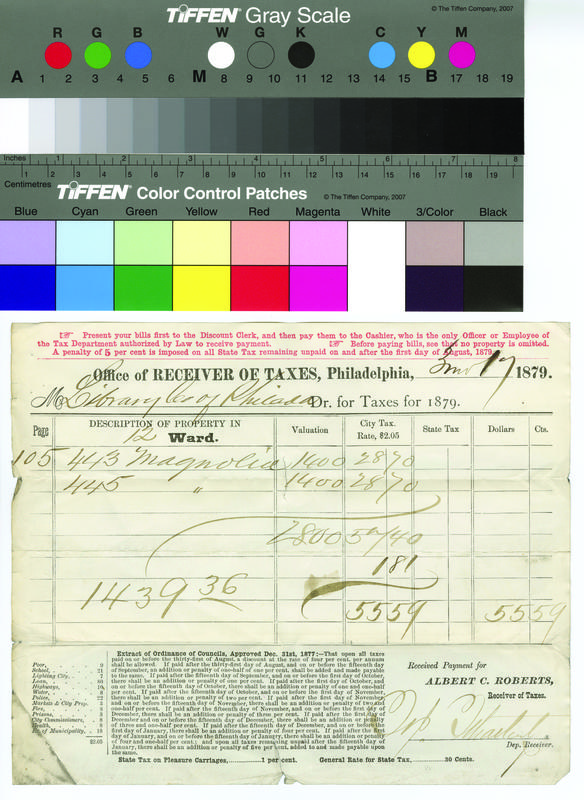 © The Tiffen Company, 2007
TIFFEN® Gray Scale
R G B W G K C Y M
A 1 2 3 4 5 6 M 8 9 10 11 12 13 14 15 B 17 18 19
Inches 1 2 3 4 5 6 7 8
Centimetres 1 2 3 4 5 6 7 8 9 10 11 12 13 14 15 16 17 18 19
TIFFEN® Color Control Patches © The Tiffen Company, 2007
Blue Cyan Green Yellow Red Magenta White 3/Color Black
Present your bills first to the Discount Clerk, and then pay them to the Cashier, who is the only Officer or Employee of
the Tax Department authorized by Law to receive payment. Before paying bills, see that no property is omitted.
A penalty of 5 per cent is imposed on all State Tax remaining unpaid on and after the first day of August, 1879.
Office of RECEIVER OF TAXES, Philadelphia, 3mo 17 1879.
M Library Co of Philada Dr. for Taxes for 1879.
Page DESCRIPTION OF PROPERTY IN 12 Ward. Valuation City Tax. Rate, $2.05 State Tax Dollars Cts.
105 443 Magnolia 1400 28 70
445 " 1400 28 70
2800 57 40
1 81
1439 36
55 59 55 59
Extract of Ordinance of Councils, Approved Dec. 31st, 1877:—That upon all taxes
paid on or before the thirty-first of August, a discount at the rate of four per cent. per annum
shall be allowed. If paid after the thirty-first day of August, and on or before the fifteenth day
of September, an addition or penalty of one-half of one per cent. shall be added and made payable
to the same. If paid after the fifteenth of September, and on or before the first day of October,
there shall be an addition or penalty of one per cent. If paid after the first day of October, and
on or before the fifteenth day of October, there shall be an addition or penalty of one and one-half
per cent. If paid after the fifteenth day of October, and on or before the first day of November,
there shall be an addition or penalty of two per cent. If paid after the first day of November,
and on or before the fifteenth day of November, there shall be an addition or penalty of two and
one-half per cent. If paid after the fifteenth day of November, and on or before the first day of
December, there shall be an addition or penalty of three per cent. If paid after the first day of
December and on or before the fifteenth day of December, there shall be an addition or penalty
of three and one-half per cent. If paid after the fifteenth day of December, and on or before the
first day of January, there shall be an addition or penalty of four per cent. If paid after the first
day of January, and on or before the fifteenth day of January, there shall be an addition or penalty
of four and one-half per cent.; and upon all taxes remaining unpaid after the fifteenth day of
January, there shall be an addition or penalty of five per cent. added to and made payable upon
the same.
Poor, 9
School, 21
Lighting City, 7
Loan, 80
Highways, 10
Water,
Police, 22
Markets & City Prop. 3
Fire,
Prisons,
City Commissioners, 8
Health,
Ex. of Municipality, 18
$2.05
State Tax on Pleasure Carriages, 1 per cent. General Rate for State Tax, 30 Cents.
Received Payment for
ALBERT C. ROBERTS,
Receiver of Taxes.
Dep. Receiver.